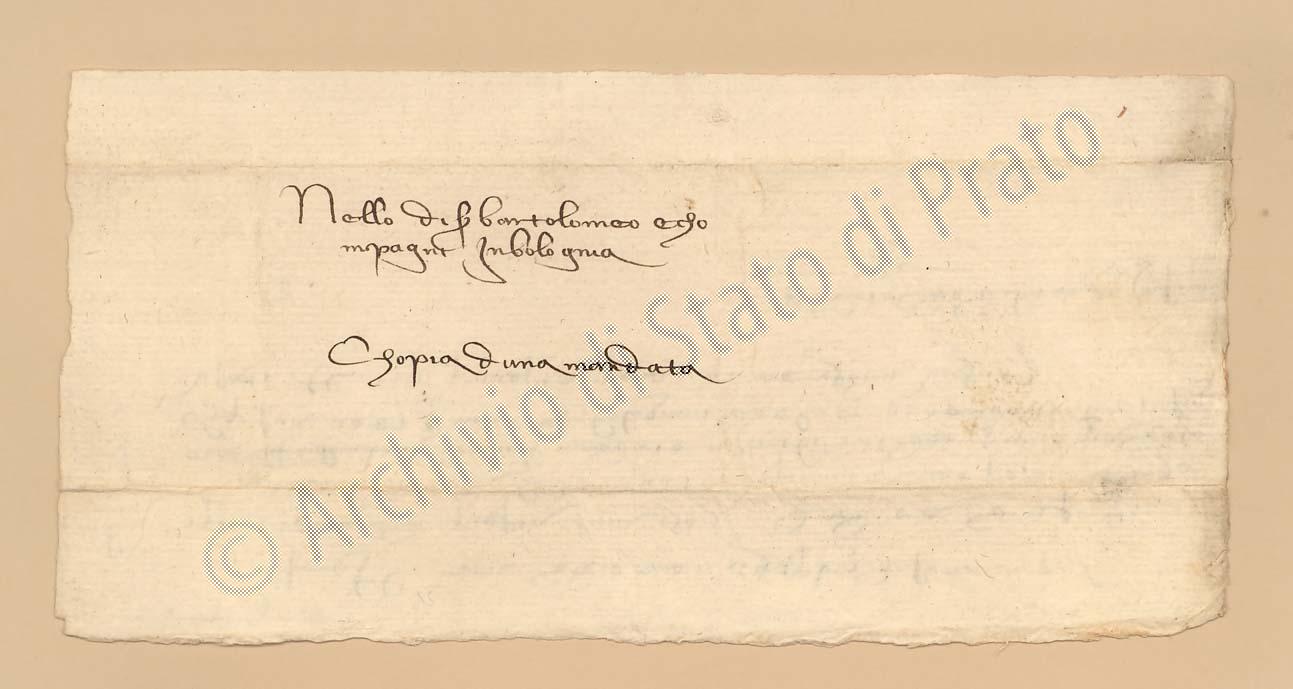 Nello di s bartolomeo echo
mpagni Inbolognia
Chopia duna mandata
© Archivio di Stato di Prato